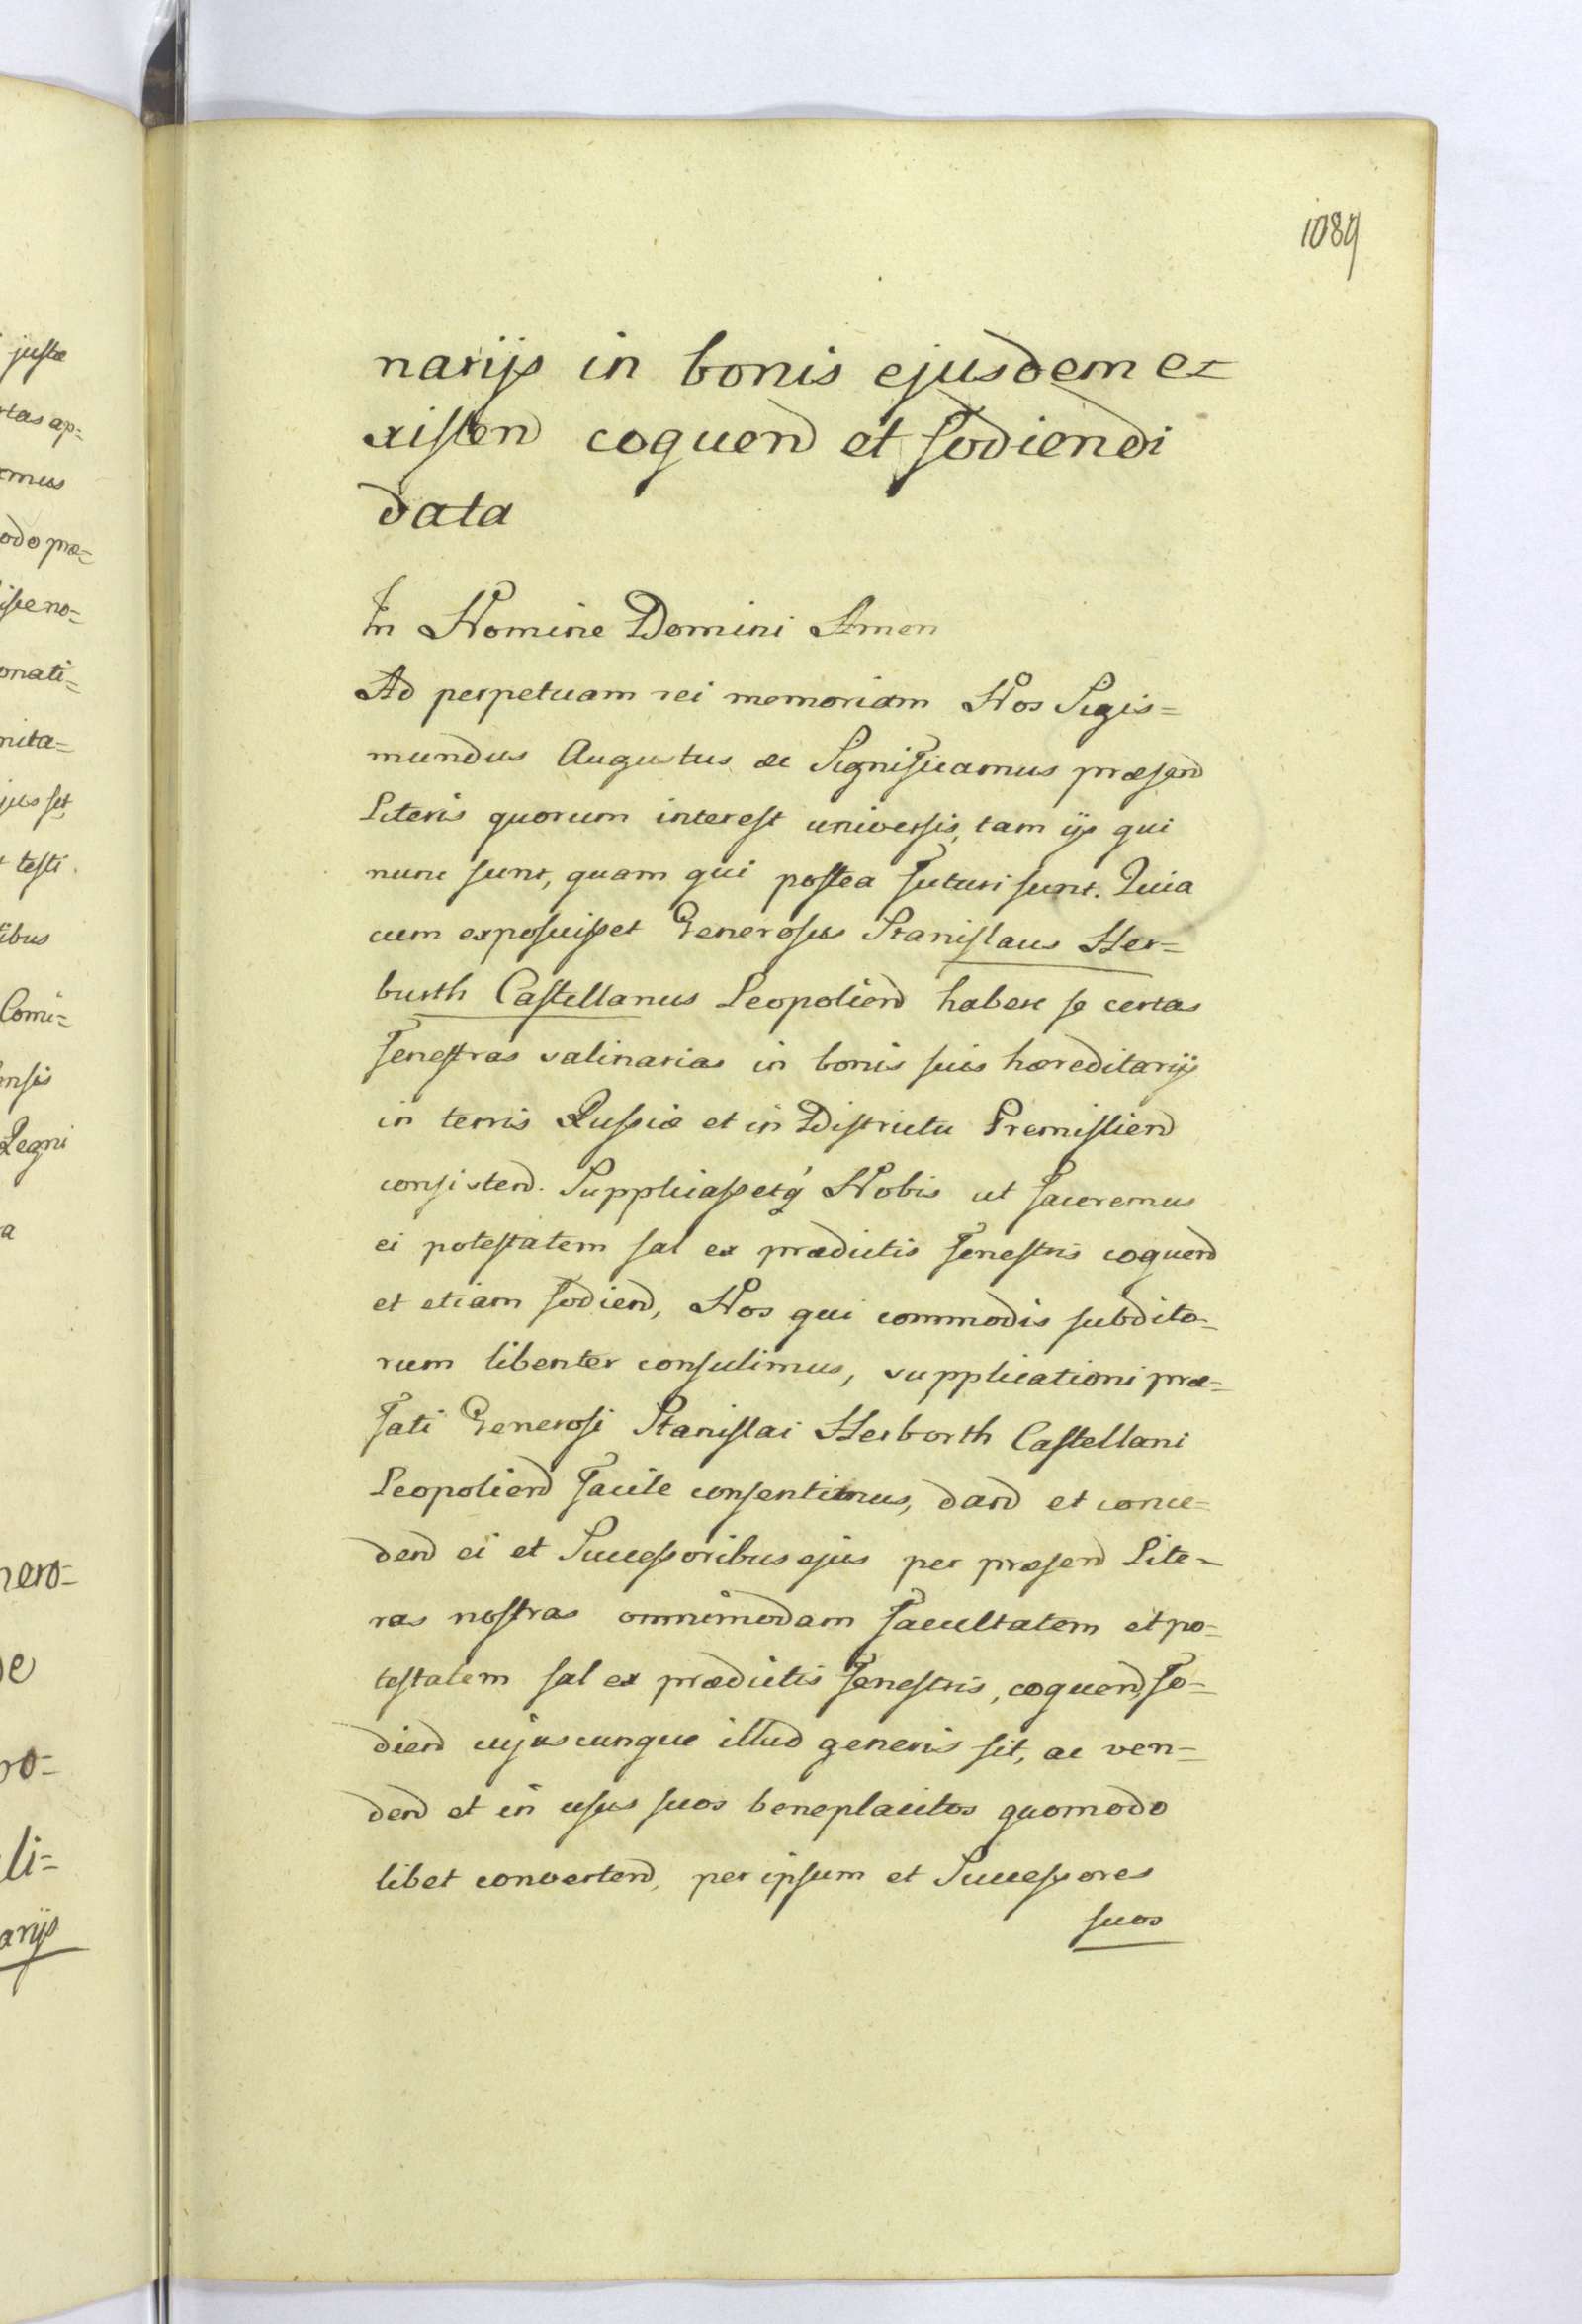 1089
narijs in bonis ejusdem e=
xisten coquend et fodiendi
data
In Nomine Domini Amen
Ad perpetuam rei memoriam Nos Sigis=
mundus Augustus &c Significamus præsend
Literis quorum interest universis, tam ijs qui
nunc sunt, quam qui postea futuri sunt. Quia
cum exposuisset Generosus Stanislaus Her=
burth Castellanus Leopoliend habere se certas
fenestras salinarias in bonis suis hæreditarijs
in terris Russiæ et in Districtu Premisliend
consistend. Supplicassetq́ Nobis ut faceremus
ei potestatem sal ex prædictis fenestris coquend
et etiam fodiend, Nos qui commodis subdito=
rum libenter consulimus, supplicationi præ=
fati Generosi Stanislai Herborth Castellani
Leopoliend facile consentimus, dand et conce=
dend ei et Successoribus ejus per præsend Lite=
ras nostras omnimodam facultatem et po=
testatem sal ex prædictis fenestris, coquend, fo=
diend cujuscunque illud generis sit, ac ven=
dend et in usus suos beneplacitos quomodo
libet convertend, per ipsum et Successores
suos
justæ
tas ap=
emus
odo præ=
isse no=
onati=
nita=
jus set
testi.
ibus
Comi=
ensis
Regni
a
nero=
de
ro=
li=
arijs